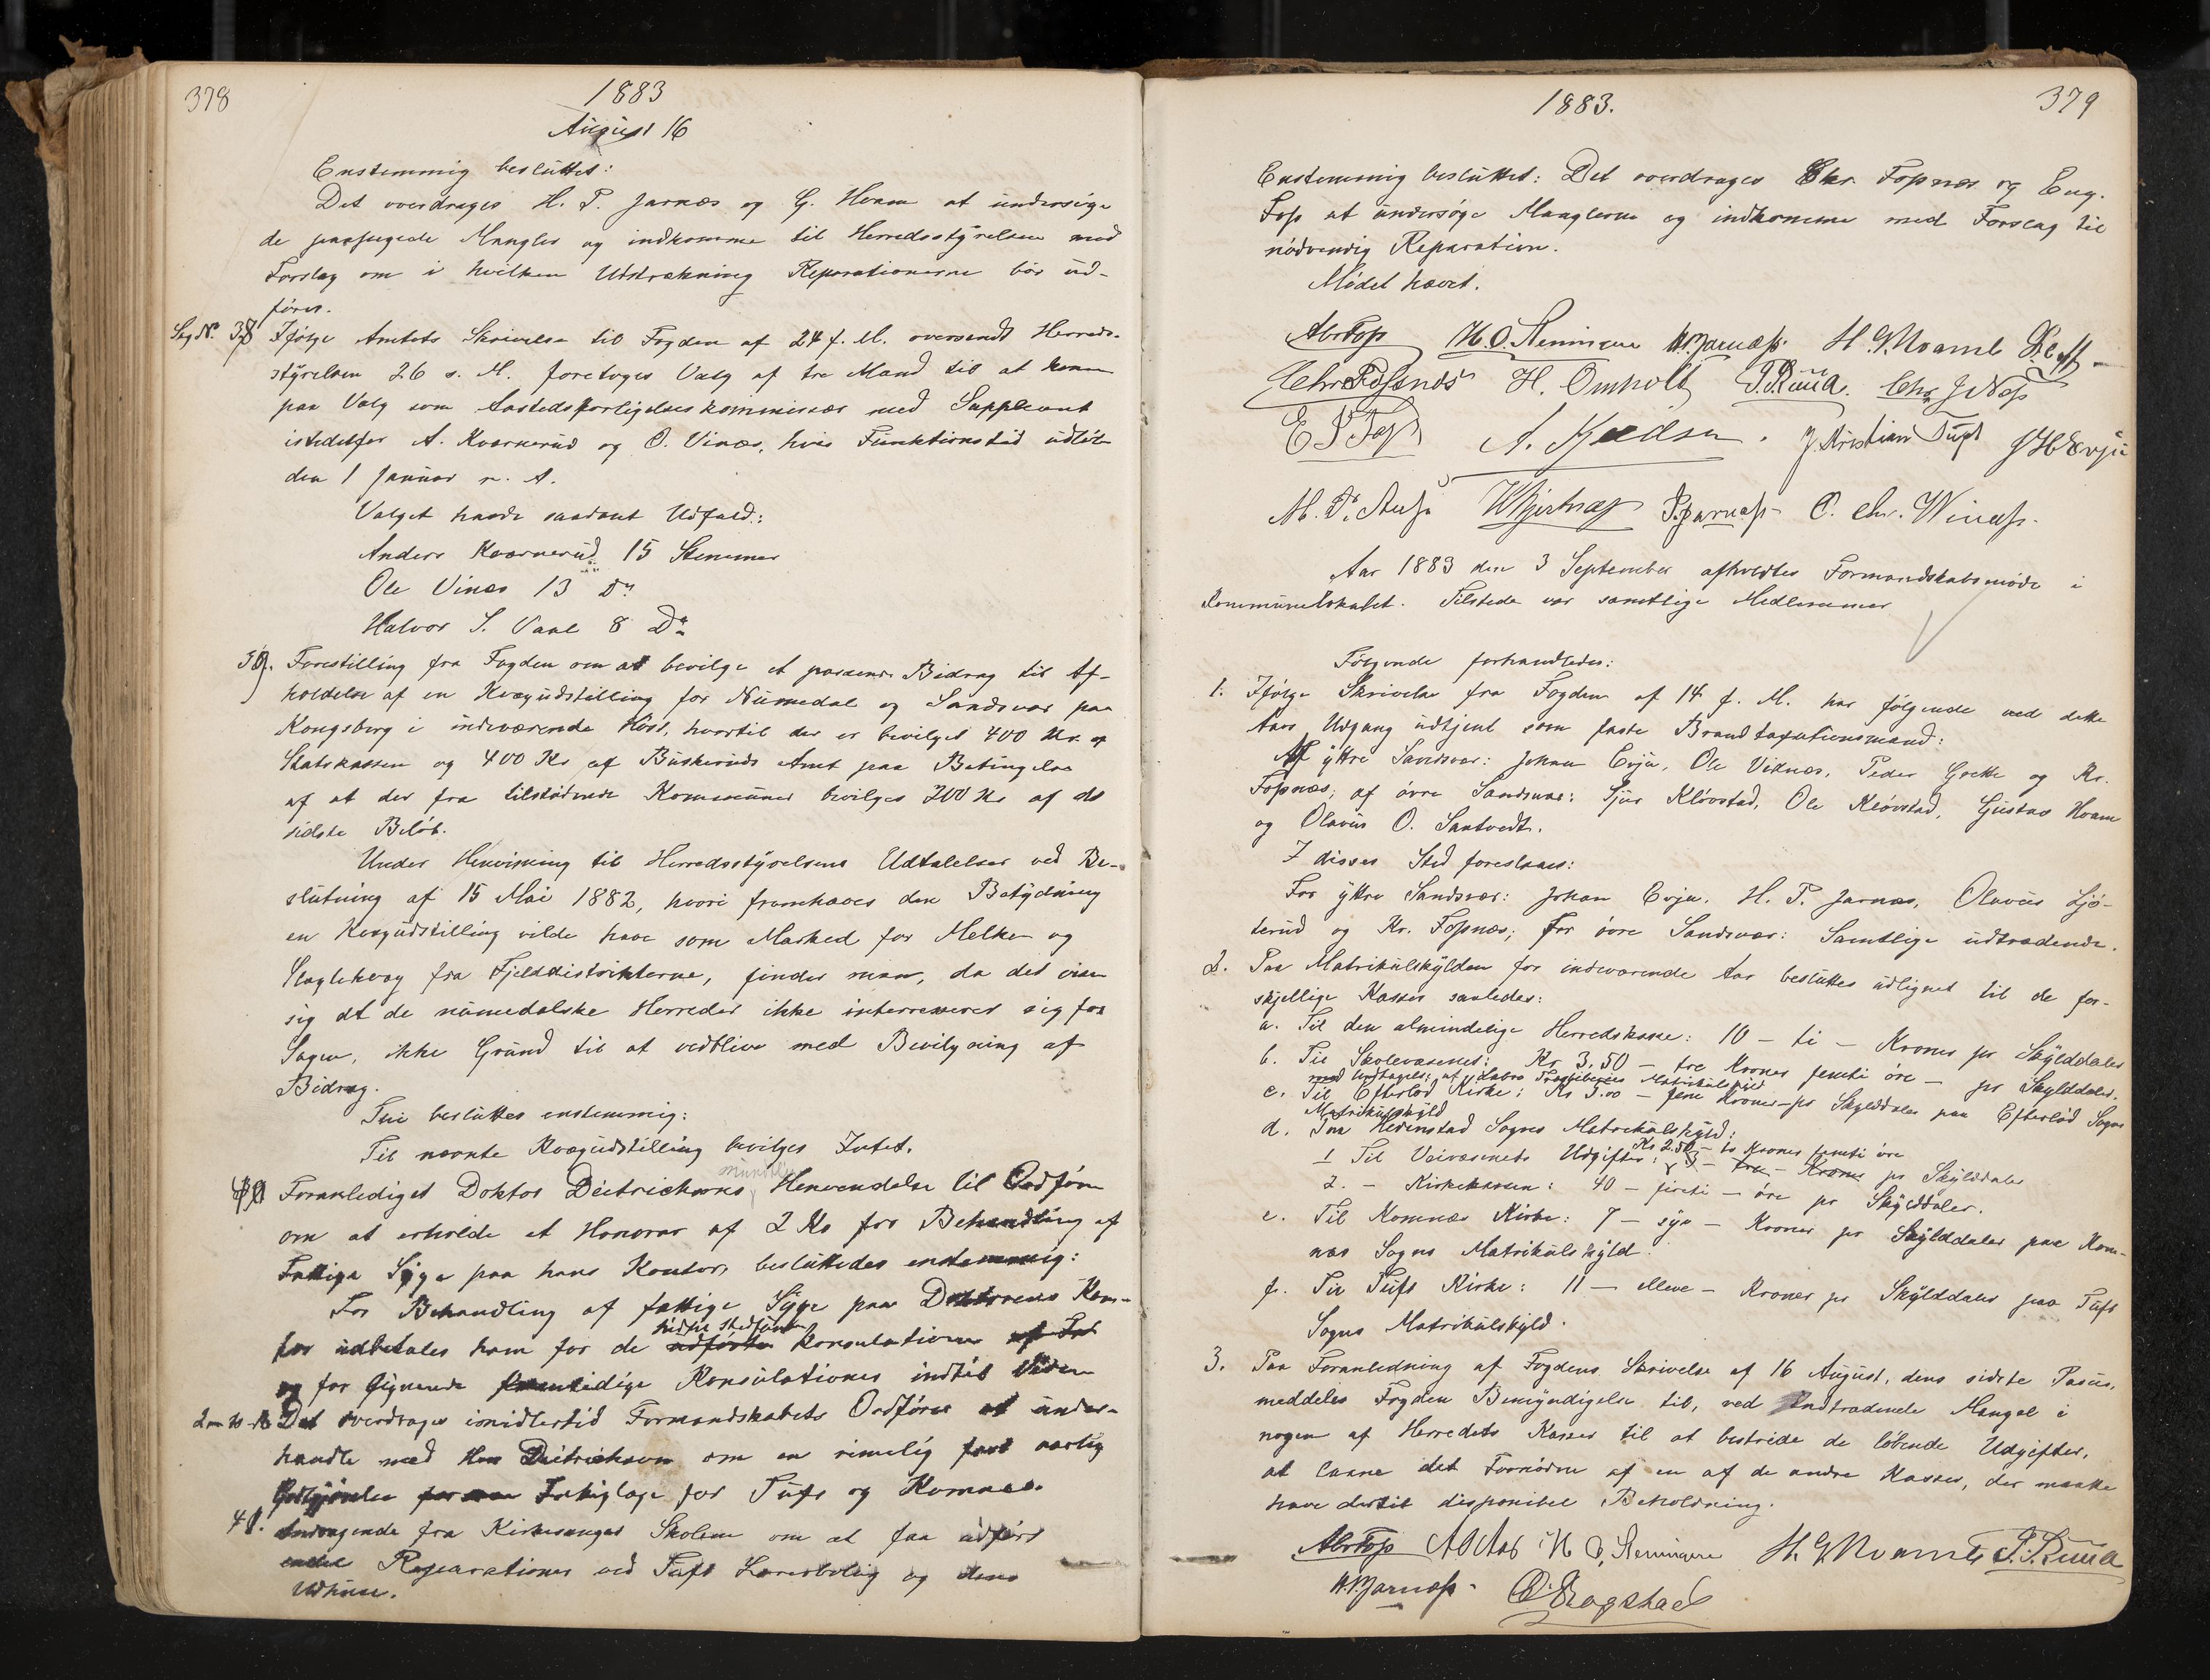 378
1883
August 16
Enstemmig besluttet:
Det overdrages H. P. Jarnæs og G. Hvam at undersøge
de paapegede Mangler og indkomme til Herredsstyrelsen med
Forslag om i hvilken Udstrækning Reparationerne bör ud-
föres.
Sag No. 38 Ifølge Amtets Skrivelse til Fogden af 24 f. M. oversendt Herreds-
styrelsen 26 s. M. foretoges Valg af tre Mænd til at komme
paa Valg som Aastedsforligelseskommissær med Suppleant
istedetfor A. Kværnerud og O. Vinæs, hvis Funktionstid udløber
den 1 Januar n. A.
Valget havde saadant Udfald:
Anders Kværnerud 15 Stemmer
Ole Vinæs 13 Do
Halvor S. Vaal 8 Do
39. Forestilling fra Fogden om at bevilge et passende Bidrag til Af-
holdelse af en Kvægudstilling for Numedal og Sandsvær paa
Kongsberg i indeværende Höst, hvortil der er bevilget 400 Kr. af
Statskassen og 400 Kr af Buskeruds Amt paa Betingelse
af at der fra tilstødende Kommuner bevilges 200 Kr af det
sidste Beløb.
Under Henvisning til Herredsstyrelsens Udtalelser ved Be-
slutning af 15 Mai 1882, hvori fremhæves den Betydning
en Kvægudstilling vilde have som Marked for Melke og
Slagtekvæg fra Fjelddistrikterne, finder man, da det viser
sig at de numedalske Herreder ikke interresserer sig for
Sagen, ikke Grund til at vedblive med Bevilgning af
Bidrag.
Thi besluttes enstemmig:
Til nævnte Kvægudstilling bevilges Intet.
40 Foranlediget Doktor Deitrichsons mundtlige Henvendelse til Ordføreren
om at erholde et Honorar af 2 Kr for Behandling af
Fattige Syge paa hans Kontor, besluttedes enstemmig:
For Behandling af fattige Syge paa Doktorens Kon-
tor udbetales ham for de udførte hidtil stedfundne Konsulationer
og for lignende fremtidige Konsulationer indtil Videre
2 - to - Kr Det overdrages imidlertid Formandskabets Ordfører at under-
handle med Hr Deitrichson om en rimelig fast aarlig
Godtgjörelse for Fattiglæge for Tuft og Komnæs.
41. Andragende fra Kirkesanger Skolem om at faa udført
endel Reparationer ved Tuft Lærerbolig og dens
Udhuse.
1883.
379
Enstemmig besluttet: Det overdrages Chr. Fosnæs og Eng.
Foss at undersøge Manglerne og indkomme med Forslag til
nödvendig Reparation.
Mödet hævet.
Abr Foss H. O. Stenmoen H. P. Jarnæs H. G. Hvamb
Chr. Fosnæs H. Omholt P. P. Ruud Chr J Foss
E P Foss A. Kjeldsen. J. Kristian Tuft J H Evju
P. Jarnæs O. Chr. Winæss.
Aar 1883 den 3 September afholdtes Formandskabsmöde i
Kommunelokalet. Tilstede var samtlige Medlemmer
Følgende forhandledes:
1. Ifølge Skrivelse fra Fogden af 14 f. M. har følgende ved dette
Aars Udgang udtjent som faste Brandtaxationsmænd:
Af yttre Sandsvær: Johan Evju, Ole Viknæs, Peder Grette og Kr.
Fosnæs; af övre Sandsvær: Sjur Klövstad, Ole Klövstad, Gustav Hvam
og Olavus O. Santvedt.
I disses Sted foreslaaes:
For yttre Sandsvær: Johan Evju, H. P. Jarnæs, Olavus Sjö-
terud og Kr. Fosnæs; for övre Sandsvær: Samtlige udtrædende.
2. Paa Matrikulskylden for indeværende Aar besluttes udlignet til de for-
skjellige Kasser saaledes:
a. Til den almindelige Herredskasse: 10 - ti - Kroner pr Skylddaler
b. Til Skolevæsenet: Kr. 3,50 - tre Kroner femti öre - pr Skylddaler.
med Undtagelse af Matrikulskyld
c. Til Efteløt Kirke: Kr 5.00 - fem Kroner - pr Skylddaler paa Efteløt Sogns
Matrikulskyld
d. Paa Hedenstad Sogns Matrikulskyld:
1 Til Veivæsenets Udgifter: Kr 2.50 - to Kroner femti öre 3 - tre - Kroner pr Skylddaler
2. - Kirkekassen: 40 - fireti - öre pr Skylddaler.
e. Til Komnæs Kirke: 7 - syv - Kroner pr Skylddaler paa Kom-
næs Sogns Matrikulskyld.
f. Til Tuft Kirke: 11 - elleve - Kroner pr Skylddaler paa Tuft
Sogns Matrikulskyld.
3. Paa Foranledning af Fogdens Skrivelse af 16 August, dens sidste Passus,
meddeles Fogden Bemyndigelse til, ved indtrædende Mangel i
nogen af Herredets Kasser til at bestride de løbende Udgifter,
at laane det Fornödne af en af de andre Kasser, der maatte
have dertil disponibel Beholdning.
Abr Foss H. O. Stenmoen H. G. Hvamb P. P. Ruud
H. P. Jarnæs. O. Skogstad